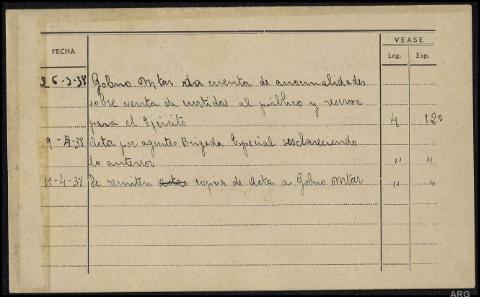 FECHA
VEASE
Leg. Exp.
26-3-38 Gobno Mtar da cuenta de anormalidades
sobre venta de curtidos al público y reserva
para el Ejército 4 120
9-4-38 Acta por agentes Brigada Especial esclareciendo
lo anterior " "
11-4-38 Se remiten copias de Acta a Gobno Mtar " "
ARG